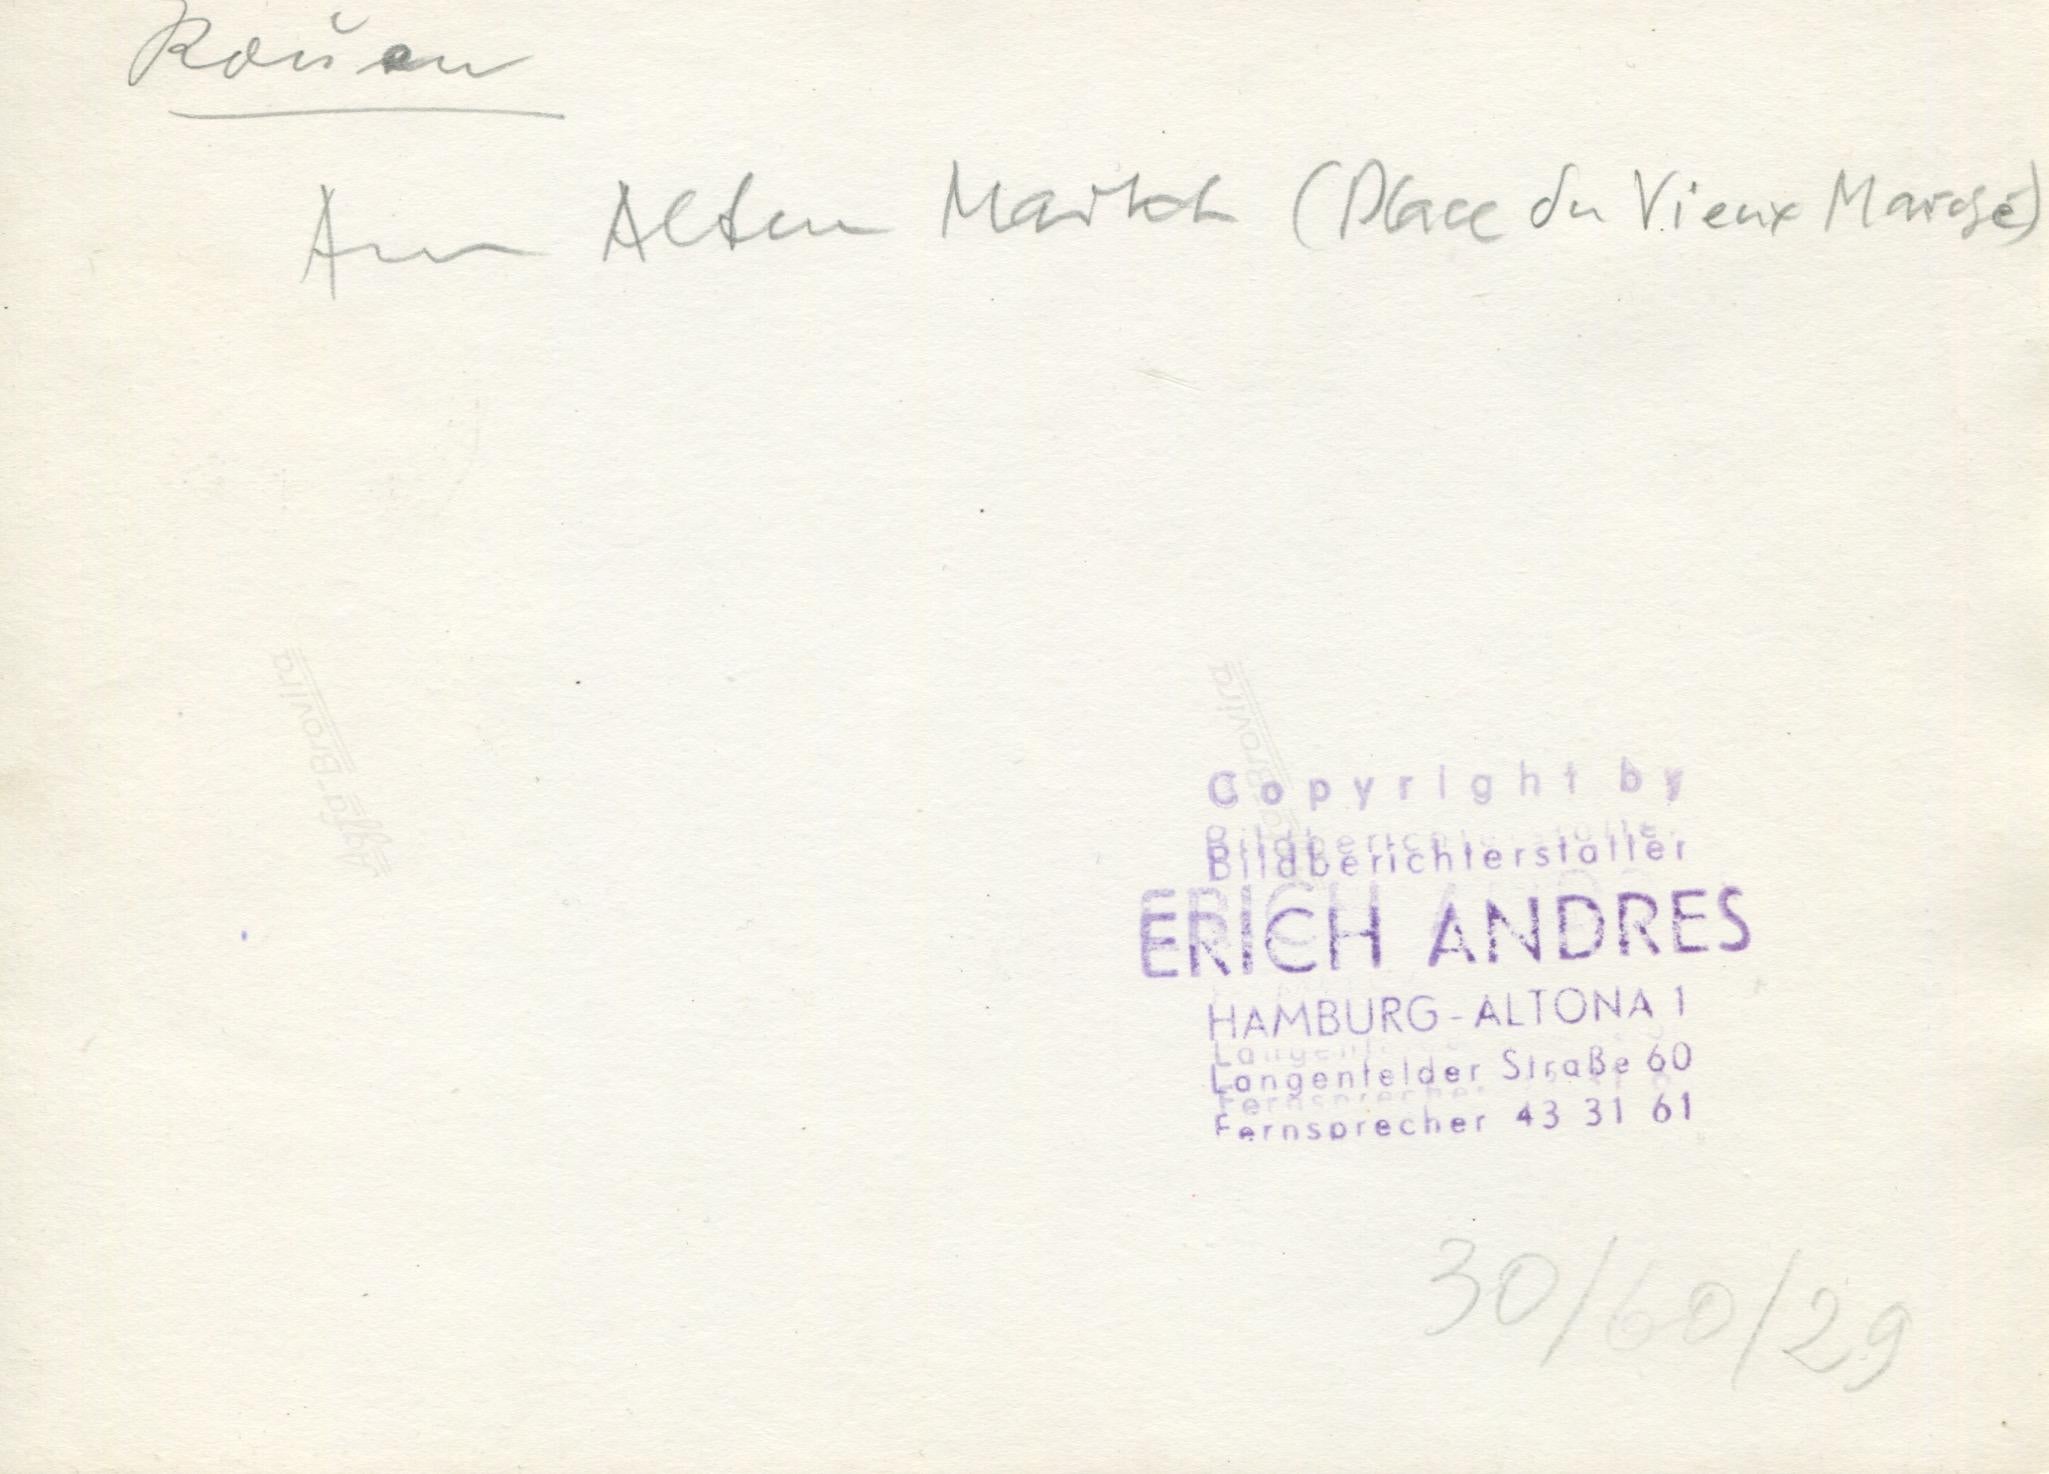 Rouen
Am Alten Markt (Place du Vieux Marché)
Agfa-Brovira
Agfa-Brovira
Copyright by
Bildberichterstatter
ERICH ANDRES
HAMBURG-ALTONA 1
Langenfelder Straße 60
Fernsprecher 43 31 61
30/60/29